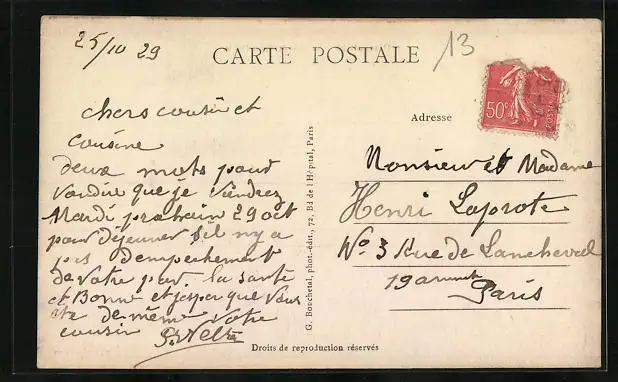 25/10 29
CARTE POSTALE
13
50c
chers cousin et
cousine
deux mots pour
vous dire que je viendrez
Mardi prochain 29 oct
pour déjeuner s'il n'y a
pas d'empechement
de votre part. la santé
et Bonne et j'esper que vous
ete de meme Votre
cousin
Adresse
Monsieur et Madame
Henri Laporte
No 3 Rue de
19
Paris
G. Bouchetal, phot.-édit., 72, Bd de l'Hôpital, Paris
Droits de reproduction réservés